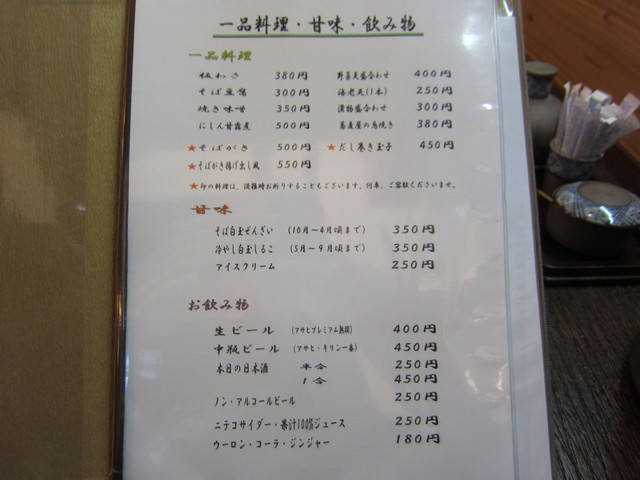 一品料理・甘味・飲み物
一品料理
板わさ 380円 野菜天盛合わせ 400円
そば豆腐 300円 海老天(1本) 250円
焼き味噌 350円 漬物盛合わせ 300円
にしん甘露煮 500円 蕎麦屋の鳥焼き 380円
★そばがき 500円 ★だし巻き玉子 450円
★そばがき揚げ出し風 550円
★印の料理は、混雑時お断りすることもございます。何卒、ご容赦くださいませ。
甘味
そば白玉ぜんざい (10月～4月頃まで) 350円
冷やし白玉しるこ (5月～9月頃まで) 350円
アイスクリーム 250円
お飲み物
生ビール (アサヒプレミアム熟撰) 400円
中瓶ビール (アサヒ・キリン一番) 450円
本日の日本酒 半合 250円
1合 450円
ノン・アルコールビール 250円
ニテコサイダー・果汁100%ジュース 250円
ウーロン・コーラ・ジンジャー 180円